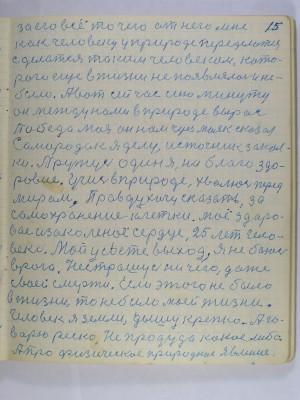 15
за его всё то чего от него мне
как человеку у природе передается
сделатся таким человеком, кото-
рого еще в жизни не появлялся и не
было. А вот сейчас ино минуту
он между нами в природе вырос
Победа моя он нам чуть маяк сказал
Самородок я делу, источник закал-
ка. Я тружусь один я, на благо здо-
ровие. Учусь в природе, хвалюсь перед
миром, Правду хочу сказать, за
само хранение клетки. мое здоро-
вае и закаленое сердце, 25 лет чело-
века. Мой у свете выход, я не боюсь
врага. Не страшусь ни чего, даже
своей смерти. Если этого не было
в жизни, то не было моей жизни.
Человек я земли, дышу крепко. А го-
варю резко, Не про чудо какое либо.
А про физическое природное явление.